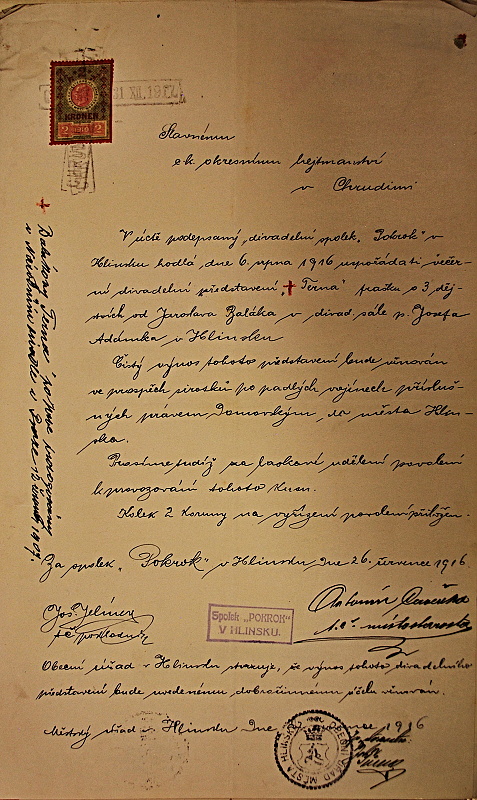 31 XII. 1917
KRONEN
2 1910 2
Slavnému
c k okresnímu hejtmanství
v Chrudimi
V úctě podepsaný divadelní spolek „Pokrok" v
Hlinsku hodlá dne 6. srpna 1916 uspořádati večer-
ní divadelní představení „Trna" frašku o 3 děj-
stvích od Jaroslava Baláka v divad. sále p. Josefa
Adámka v Hlinsku
Čistý výnos tohoto představení bude věnován
ve prospěch sirotků po padlých vojínech přísluš-
ných právem Domovským, do města Hlin-
ska.
Prosíme tudíž za laskavé udělení povolení
k provozování tohoto kusu.
Kolek 2 Koruny na vyřízení povolení přiložen.
Za spolek „Pokrok" v Hlinsku dne 26. července 1916
Jos. Jelínek
t.č. pokladník
Spolek „POKROK"
V HLINSKU.
Antonín
t.č. místostarosta
Obecní úřad v Hlinsku stvrzuje, že výnos tohoto divadelního
představení bude uvedenému dobročinnému účelu věnován.
Městský úřad v Hlinsku dne 1916
OBECNÍ ÚŘAD MĚSTA HLINSKA
v Národním divadle v Praze 1907.